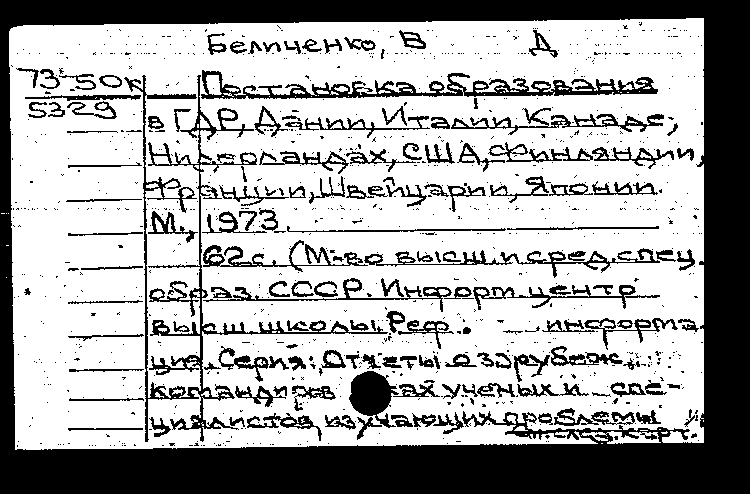 Беличенко, В Д
73-50к Постановка образования
5329
в ГДР, Дании, Италии, Канаде,
Нидерландах, США, Финляндии,
Франции, Швейцарии, Японии.
М., 1973.
62 с. (М-во высш. и сред. спец.
образ. СССР. Информ. центр
высш. школы. Реф. информа-
ция. Серия: Отчеты о зарубеж.
командиров ках ученых и спе-
циалистов, изучающих проблемы
см. след. карт.